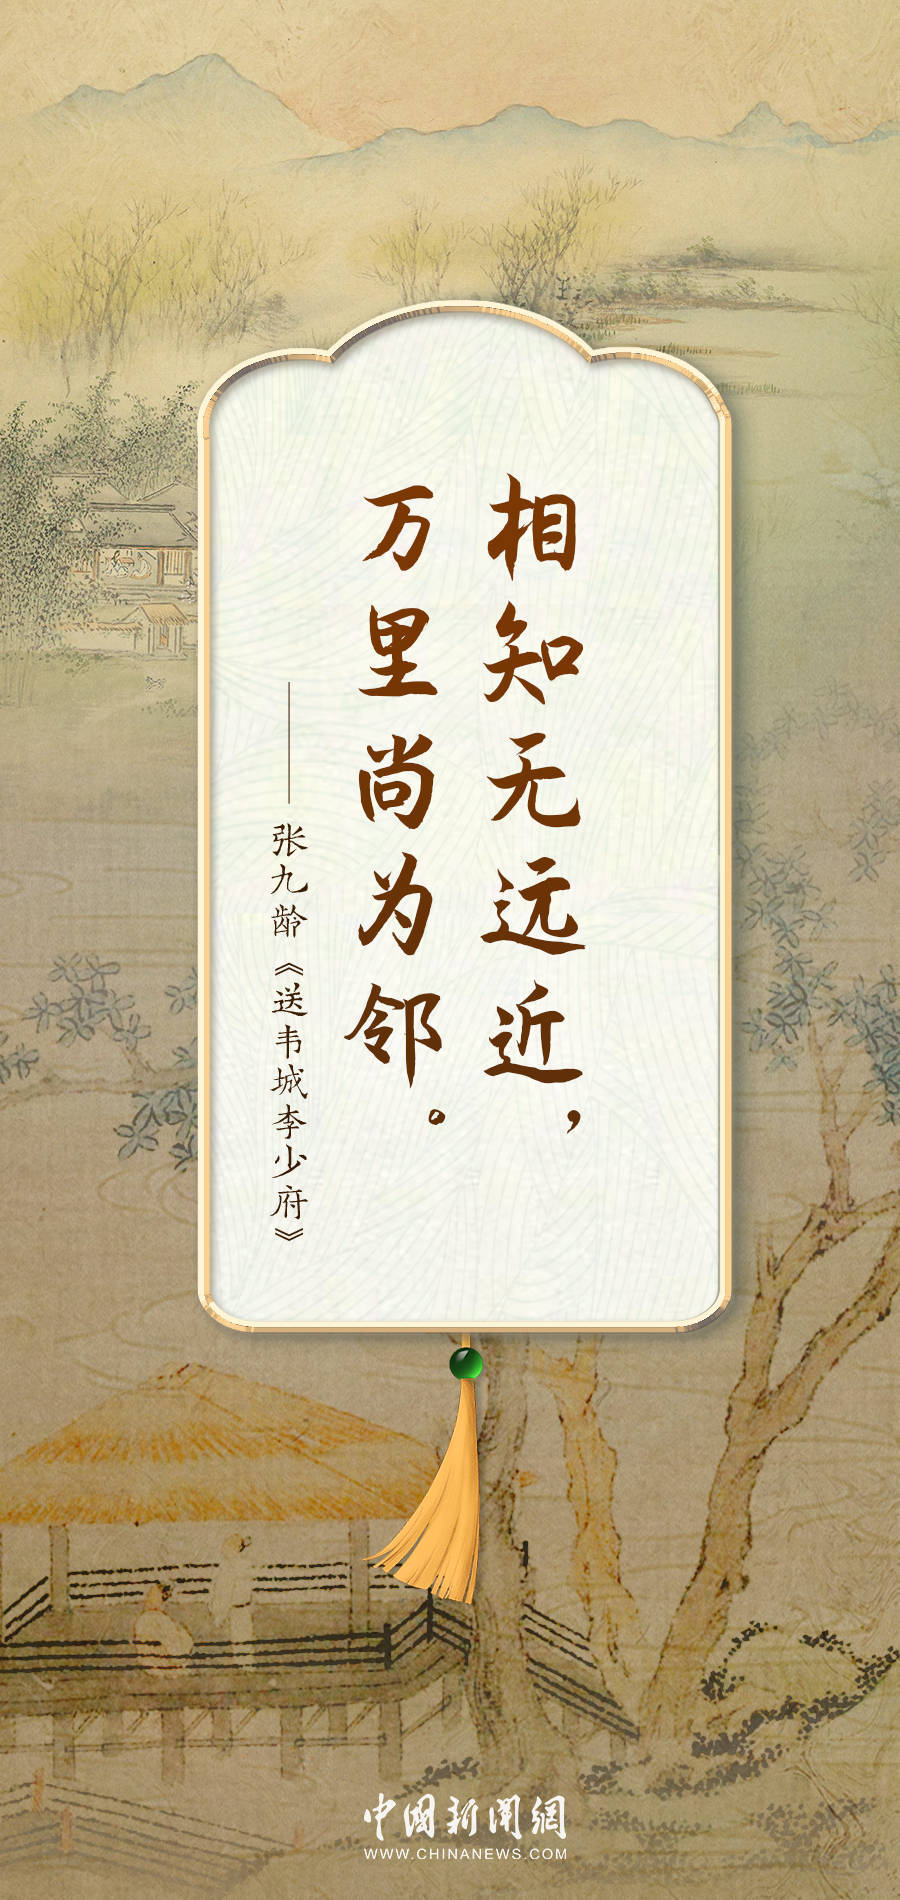 相知无远近，
万里尚为邻。
——张九龄《送韦城李少府》
中國新聞網
WWW.CHINANEWS.COM